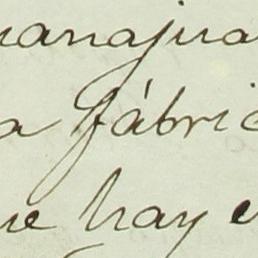 uanajua
a fábric
ue hay e